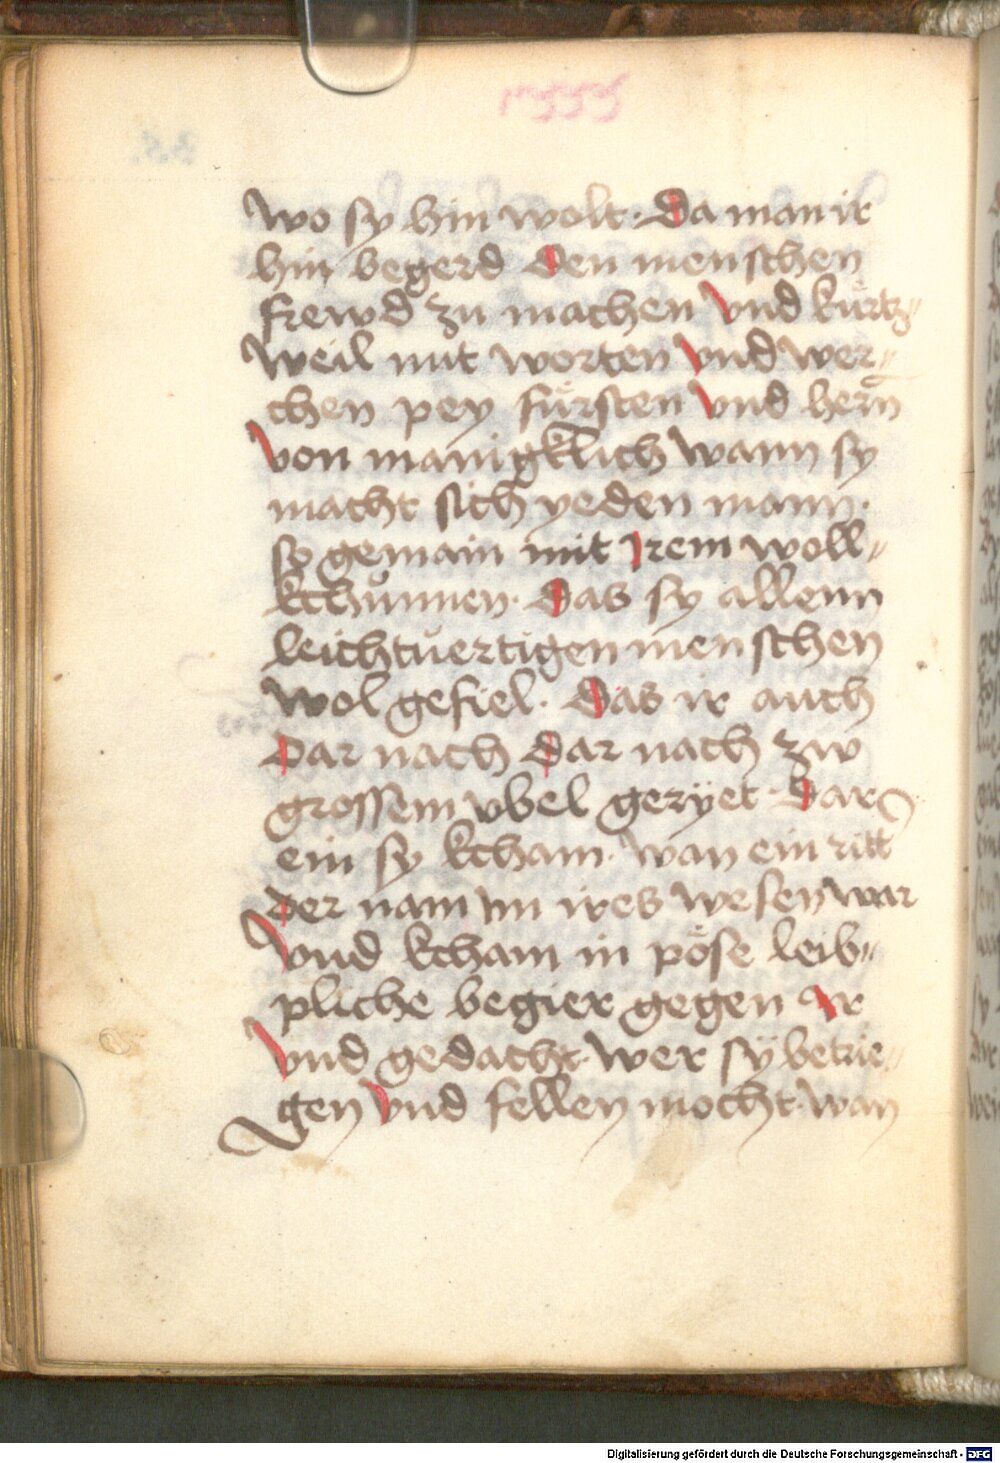 wo sy hin wolt · Da man ir
hin begerd Den menschen
frewd zu machen Vnd kürtz〃
weil mit worten Vnd wer〃
chen pey fürsten Vnd hern̄
Von manigklich wann sy
macht sich yeden mann ·
so gemain mit Irem woll〃
kchünnen · Das sy allenn
leichtuertigen menschen
wol gefiel · Das ir auch
Dar nach Dar nach zw
grossem vbel geryet · Dar
ein sy kcham · wan ein ritt
Der nam Im ires wesen war
Vnd kcham in pöse leib〃
pliche begier gegen Ir
Vnd gedacht · wer sÿ betrie〃
gen Vnd fellen mocht · wan
Digitalisierung gefördert durch die Deutsche Forschungsgemeinschaft - DFG